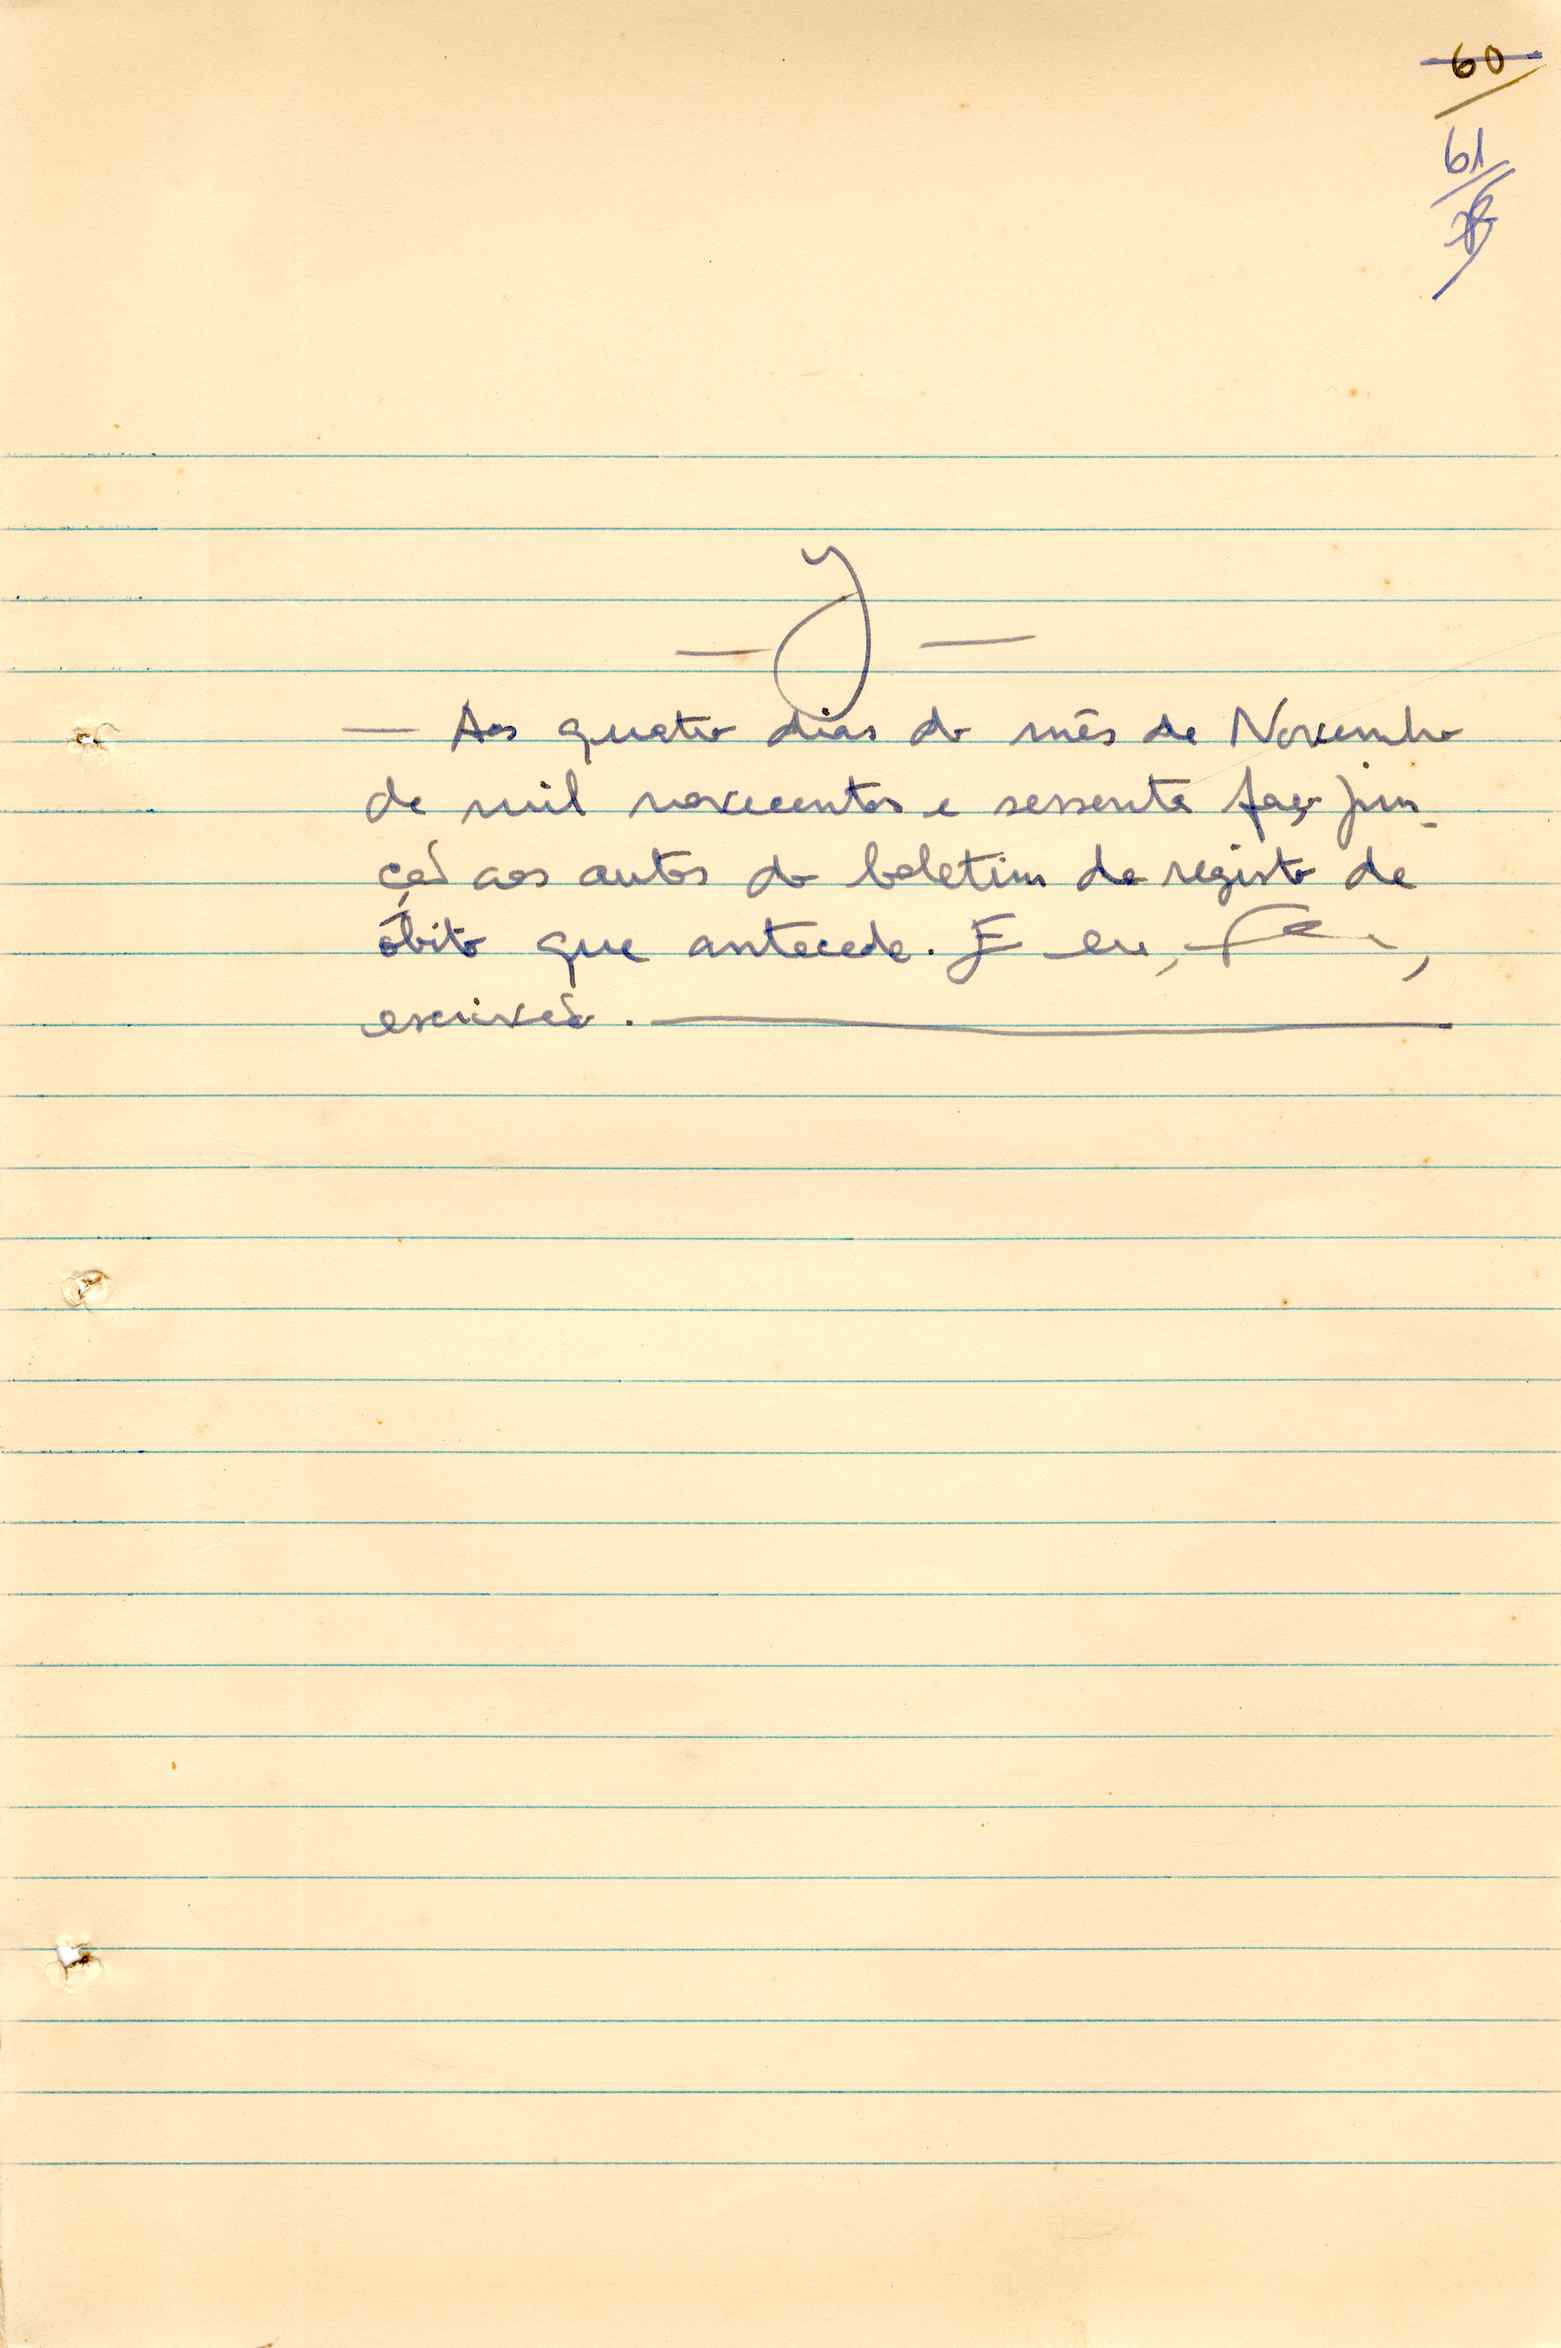 60
61
— J —
— Aos quatro dias do mês de Novembro
de mil novecentos e sessenta faço jun-
ção aos autos do boletim de registo de
óbito que antecede. E eu, ,
escrivão.